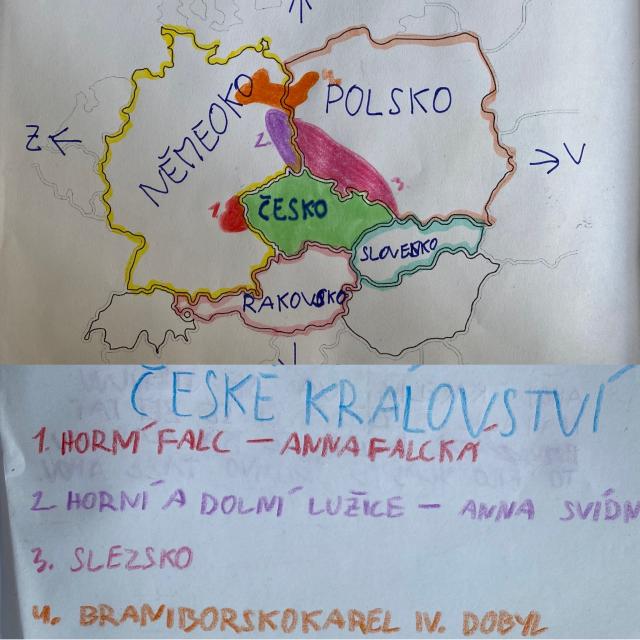 NĚMECKO
4.
POLSKO
Z
V
2.
3.
1.
ČESKO
SLOVENSKO
RAKOUSKO
ČESKÉ KRÁLOVSTVÍ
1. HORNÍ FALC – ANNA FALCKÁ
2 HORNÍ A DOLNÍ LUŽICE – ANNA SVÍDN
3. SLEZSKO
4. BRANIBORSKO KAREL IV. DOBYL